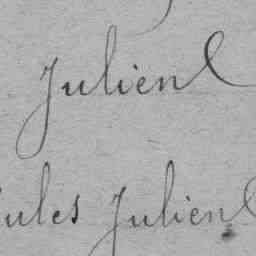 Julien
Jules Julien